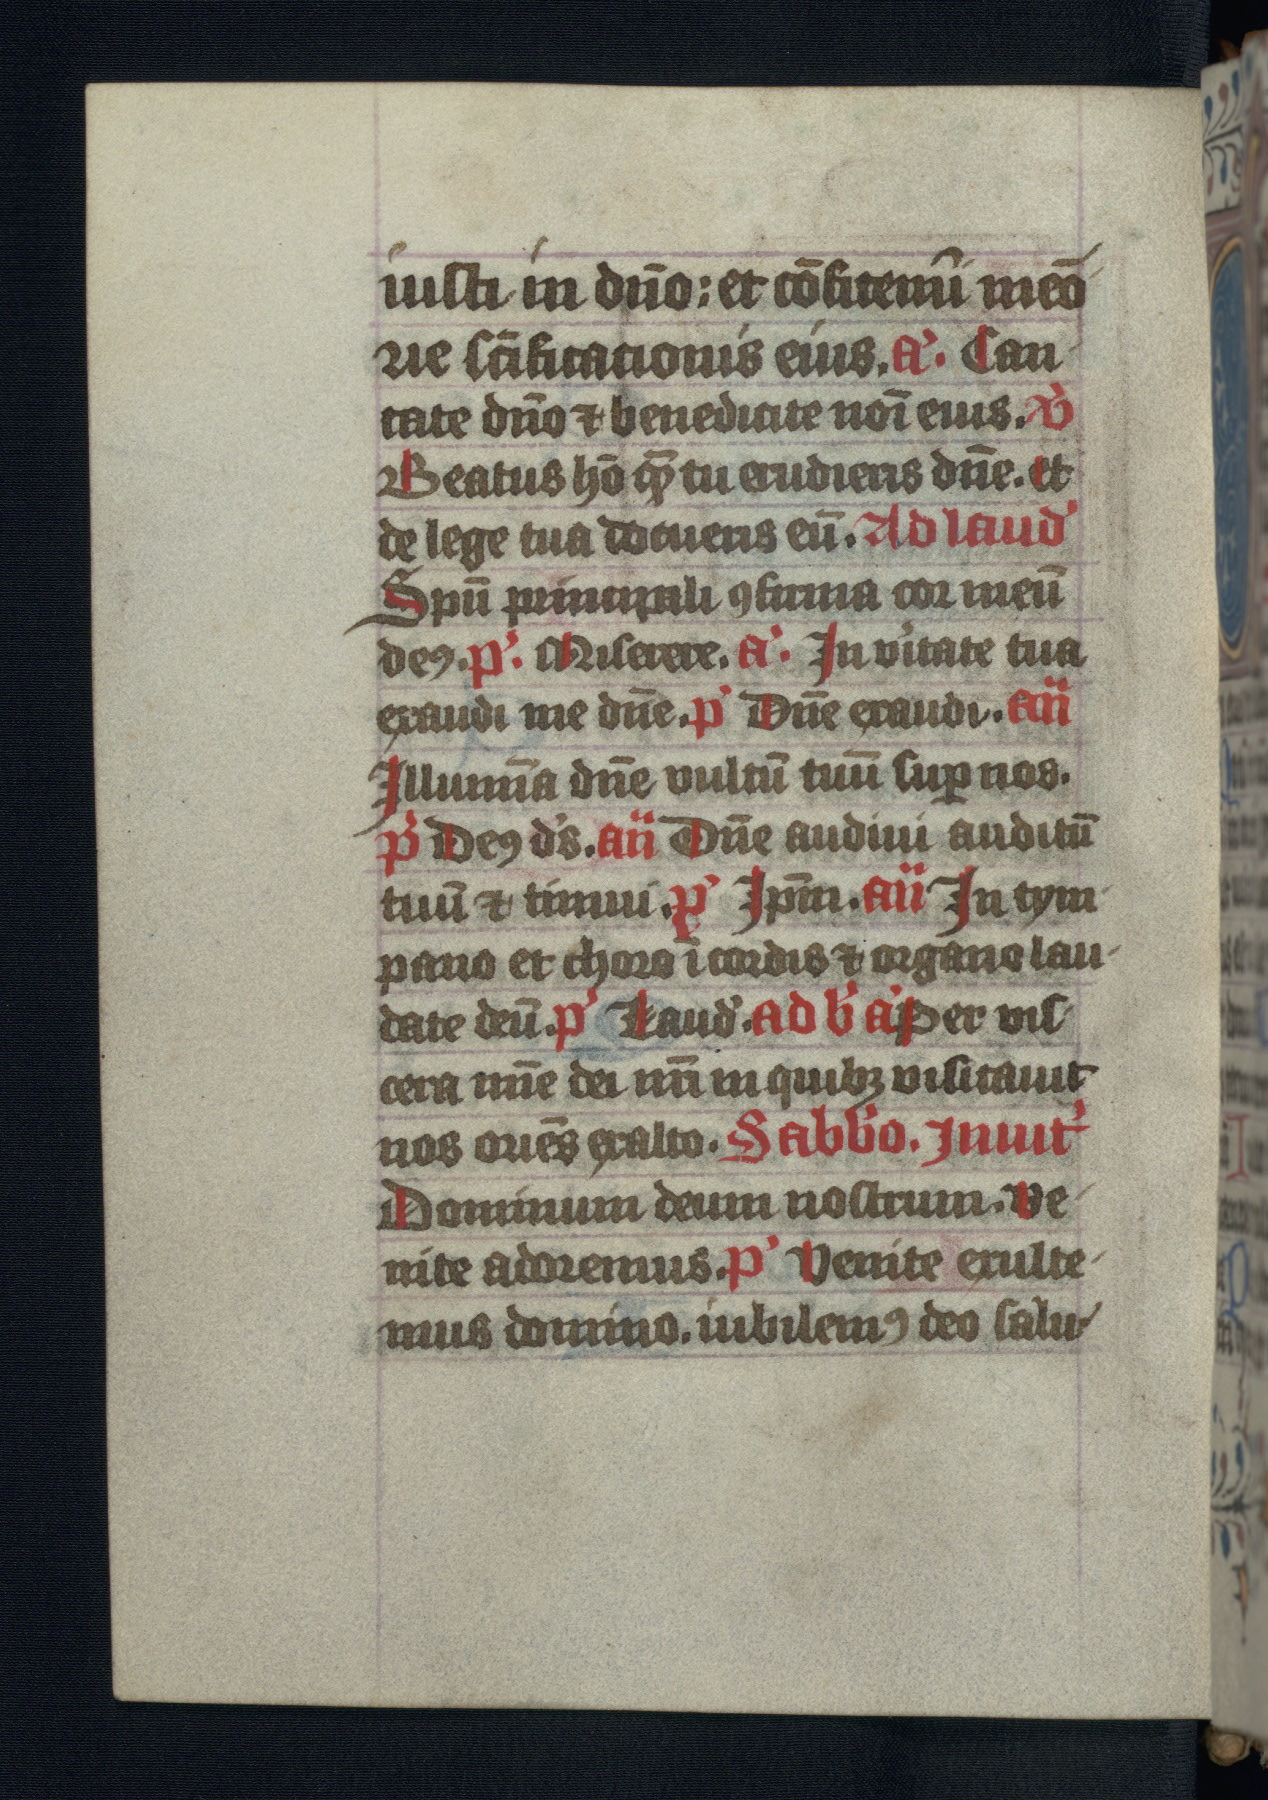 iusti in dn̄o: et cōfitemī memo
rie sc̄ificationis eius. a'. Can
tate dn̄o ⁊ benedicite noī eius. v̓
Beatus hō quē tu erudieris dn̄e. et
de lege tua docueris eū. Ad laud'
Spū principali ꝯfirma cor meū
deꝰ. p̓. Miserere. a'. In v̓itate tua
exaudi me dn̄e. p̓ Dn̄e exaudi. an̄
Illumīa dn̄e vultū tuū suꝑ nos.
p̓ Deꝰ d's. an̄ Dn̄e audiui auditū
tuū ⁊ timui. p̓ Ip̄m. an̄ In tym
pano et choro ī cordis ⁊ organo lau
date deū. p̓ Laud'. ad b̓ a' Per vis
cera mīe dei nr̄i in quibꝫ visitauit
nos oriēs exalto. Sabb̓o. Inuit'
Dominum deum nostrum. Ve
nite adoremus. p̓ Venite exulte
mus domino. iubilemꝰ deo salu